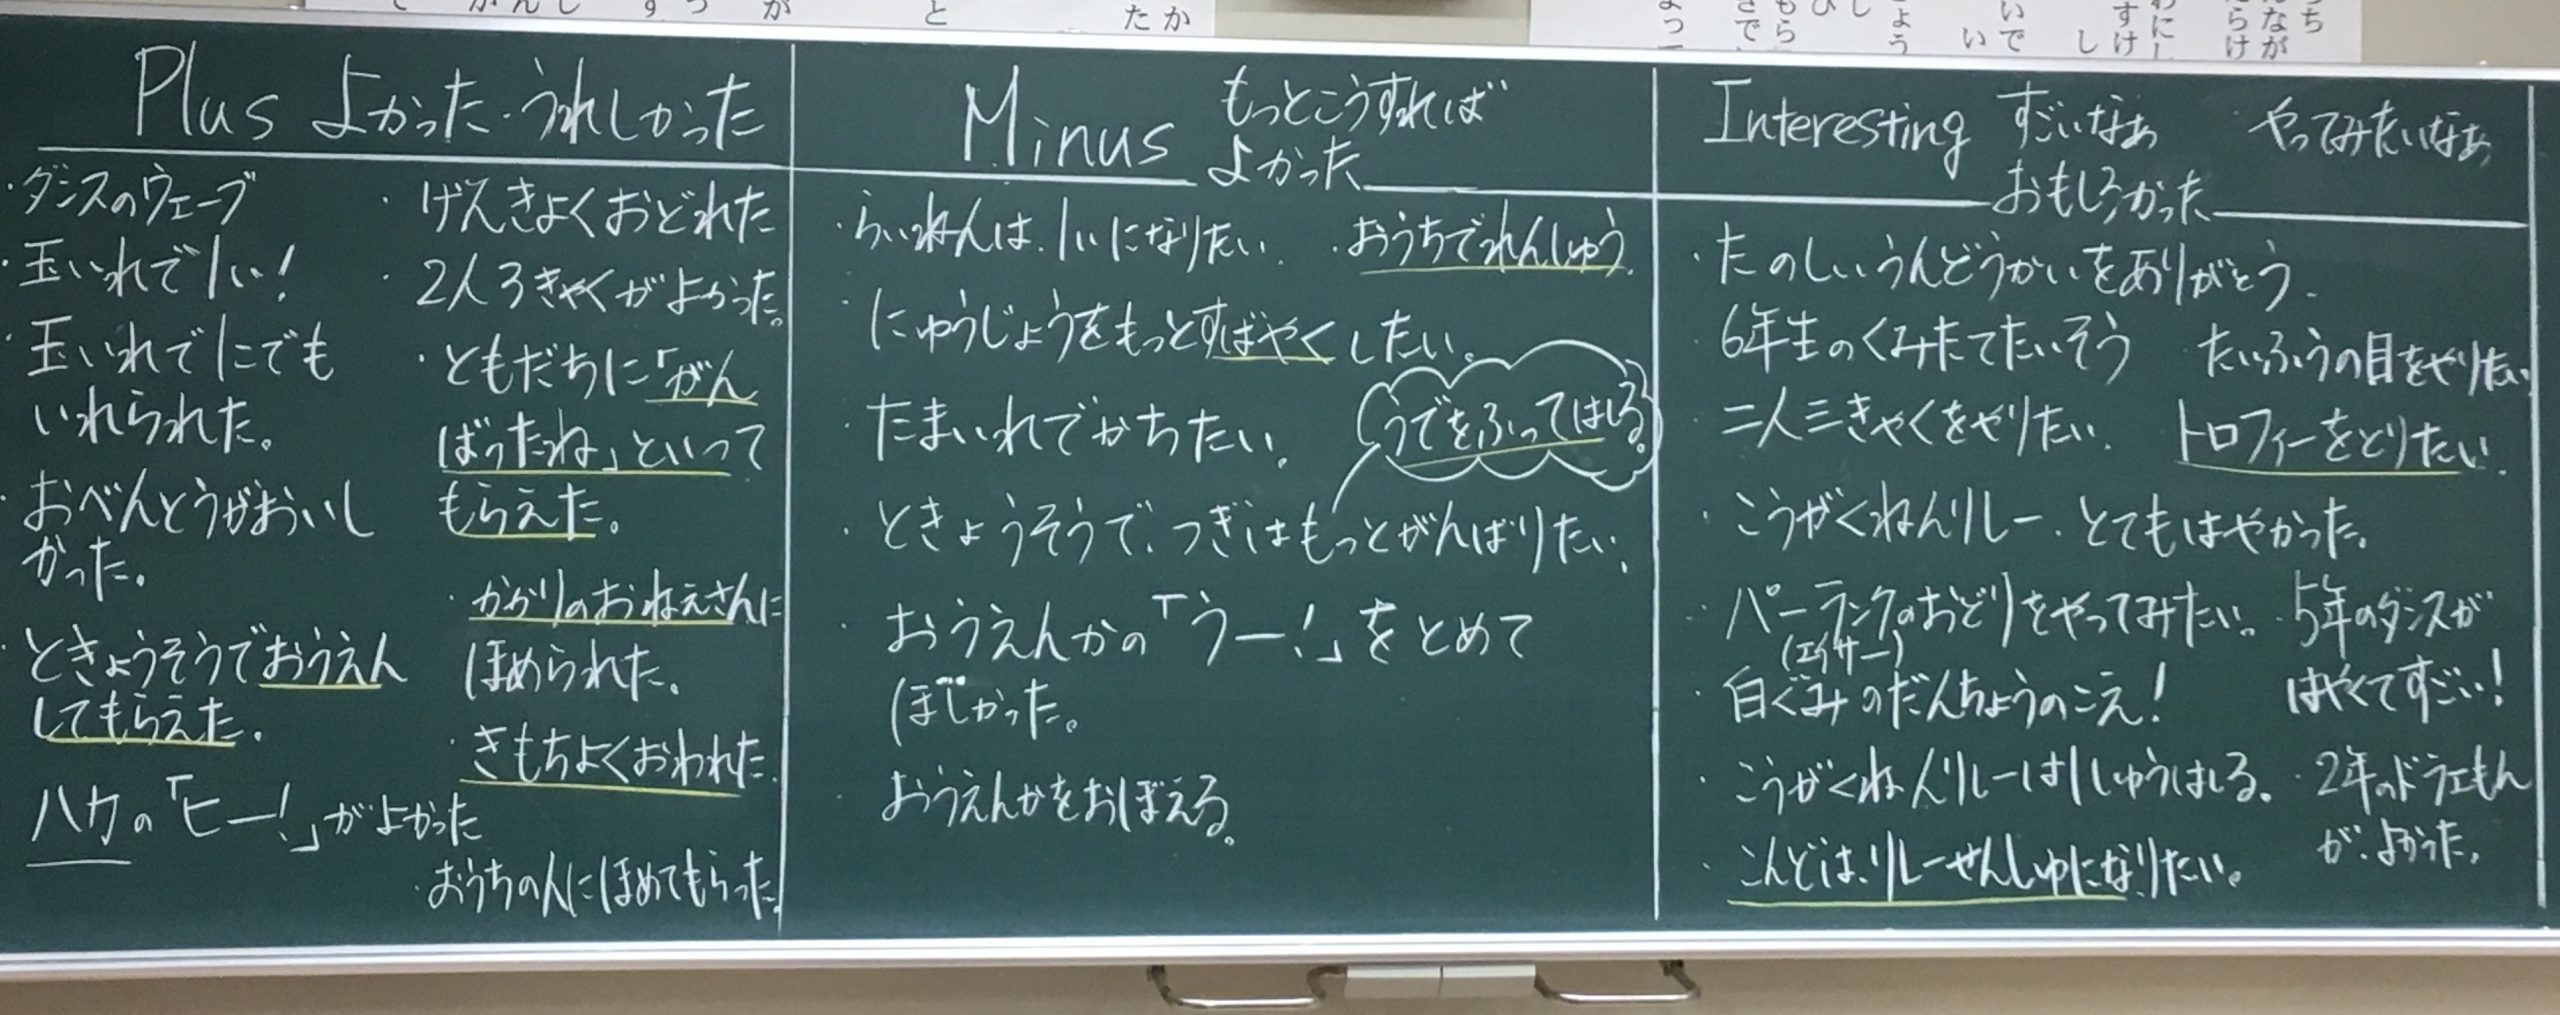 Plus よかった・うれしかった
・ダンスのウェーブ
・玉いれで1い!
・玉いれで1こでも
いれられた。
・おべんとうがおいし
かった。
・ときょうそうでおうえん
してもらえた。
ハカの「ヒー!」がよかった
・げんきよくおどれた
・2人3きゃくがよかった。
・ともだちに「がん
ばったね」といって
もらえた。
・かかりのおねえさんに
ほめられた。
・きもちよくおわれた.
・おうちの人にほめてもらった。
Minus もっとこうすれば
よかった
・らいねんは、1いになりたい.
・おうちでれんしゅう.
・にゅうじょうをもっとすばやくしたい。
・たまいれでかちたい.
うでをふってはしる。
・ときょうそうで、つぎはもっとがんばりたい.
・おうえんかの「うー!」をとめて
ほしかった。
・おうえんかをおぼえる。
Interesting すごいなぁ
おもしろかった
・やってみたいなぁ
・たのしいうんどうかいをありがとう.
・6年生のくみたてたいそう
・たいふうの目をやりたい
・二人三きゃくをやりたい.
トロフィーをとりたい.
・こうがくねんリレー、とてもはやかった。
・パーランクのおどりをやってみたい。
(エイサー)
・5年のダンスが
はやくてすごい!
・白ぐみのだんちょうのこえ!
・こうがくねんリレーは1しゅうはしる。
・2年のドラえもん
が、よかった。
・こんどは、リレーせんしゅになりたい。